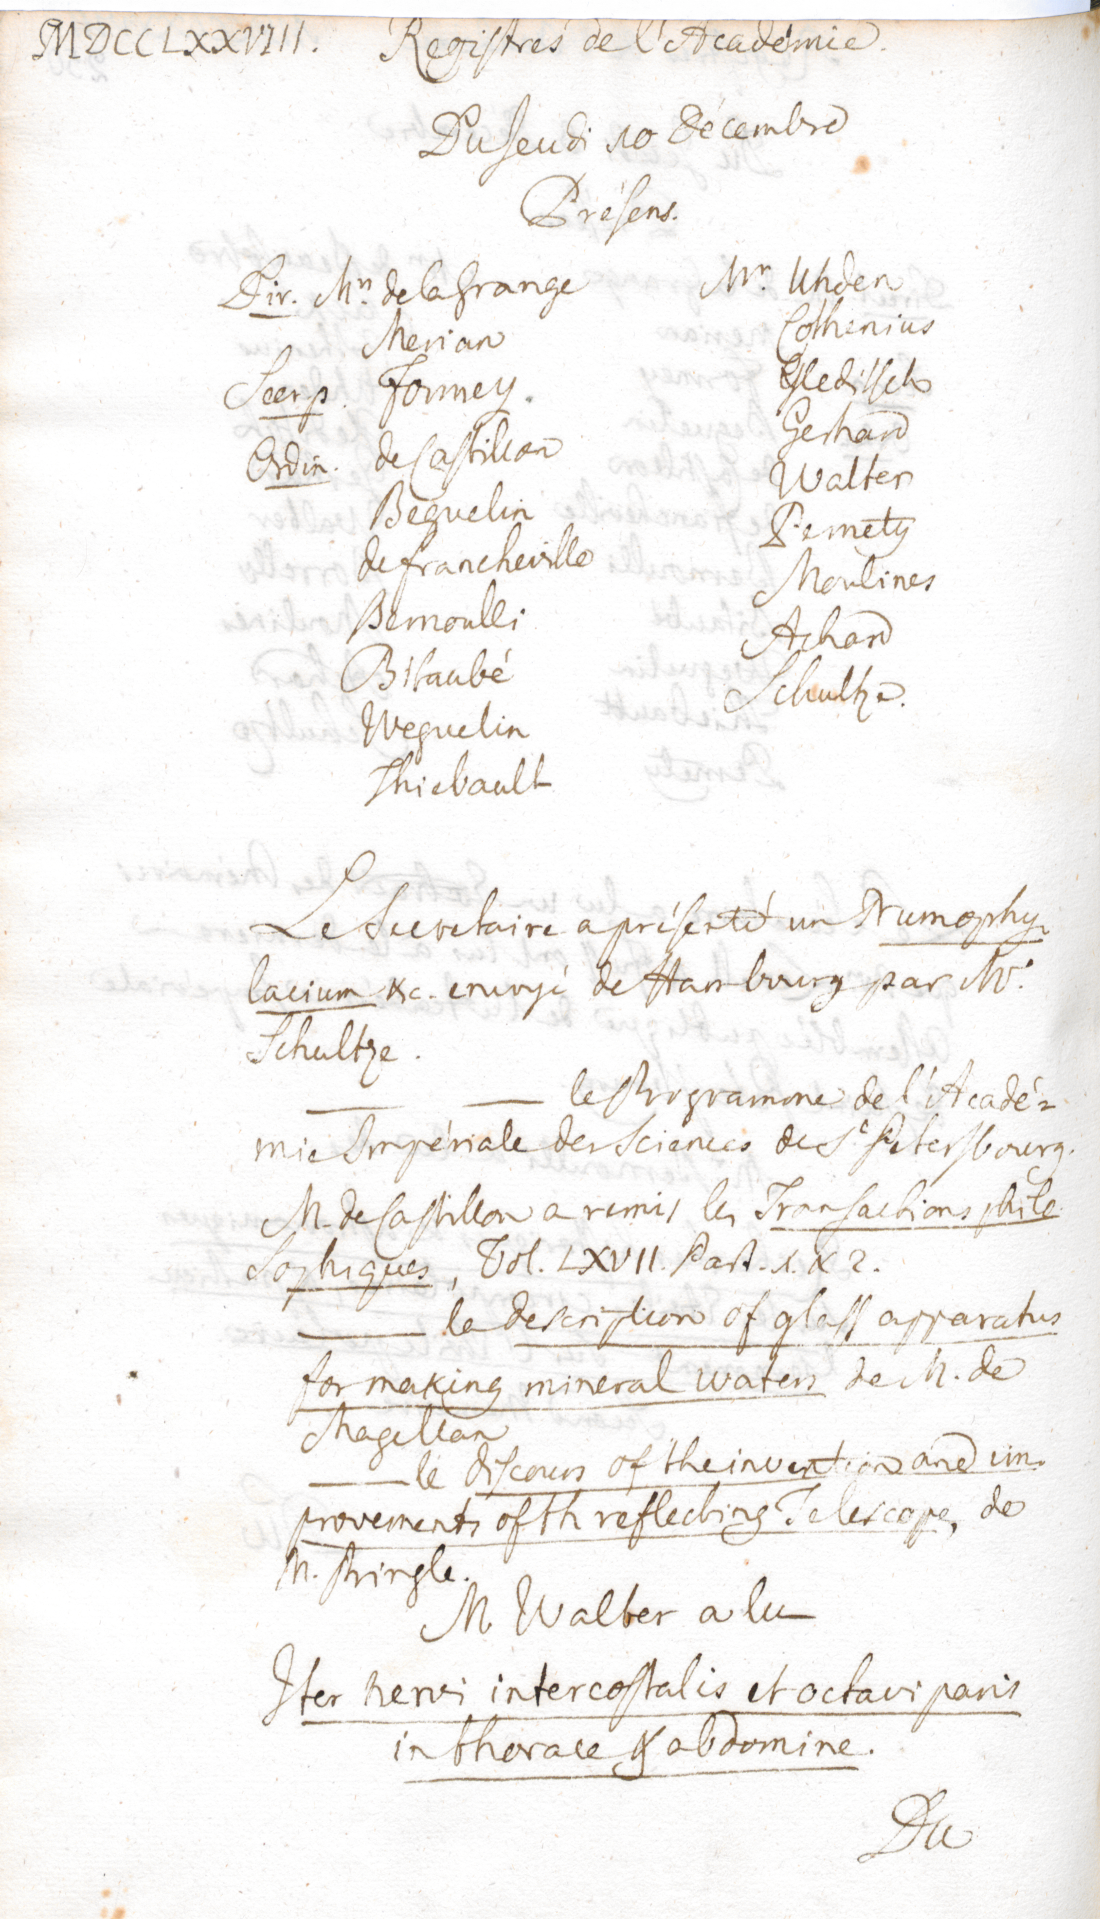 MDCCLXXVIII. Registres de l'Académie.
Du Jeudi 10 Décembre
Présens.
Dir. Mrs. de la Grange
Merian
Secr. p. Formey.
Ordin. de Castillon
Beguelin
de Francheville
Bernoulli
Bitaubé
Weguelin
Thiebault
Mrs. Uhden
Cothenius
Gleditsch
Gerhard
Walter
Pernety
Moulines
Achard
Schultze.
Le Secretaire a présenté un Numophy-
lacium &c. envoyé de Hambourg par Mr.
Schultze.
—— —— le Programme de l'Acadé-
mie Impériale des Sciences de St. Petersbourg.
M. de Castillon a remis les Transactions philo
sophiques, Vol. LXVII. Part. 1. & 2.
—— la description of glass apparatus
for making mineral waters de M. de
Magellan
—— le discours of the invention and im-
provements of th reflecting Telescope, de
M. Pringle.
M. Walter a lu
Iter nervi intercostalis et octavi paris
in thorace & abdomine.
Du